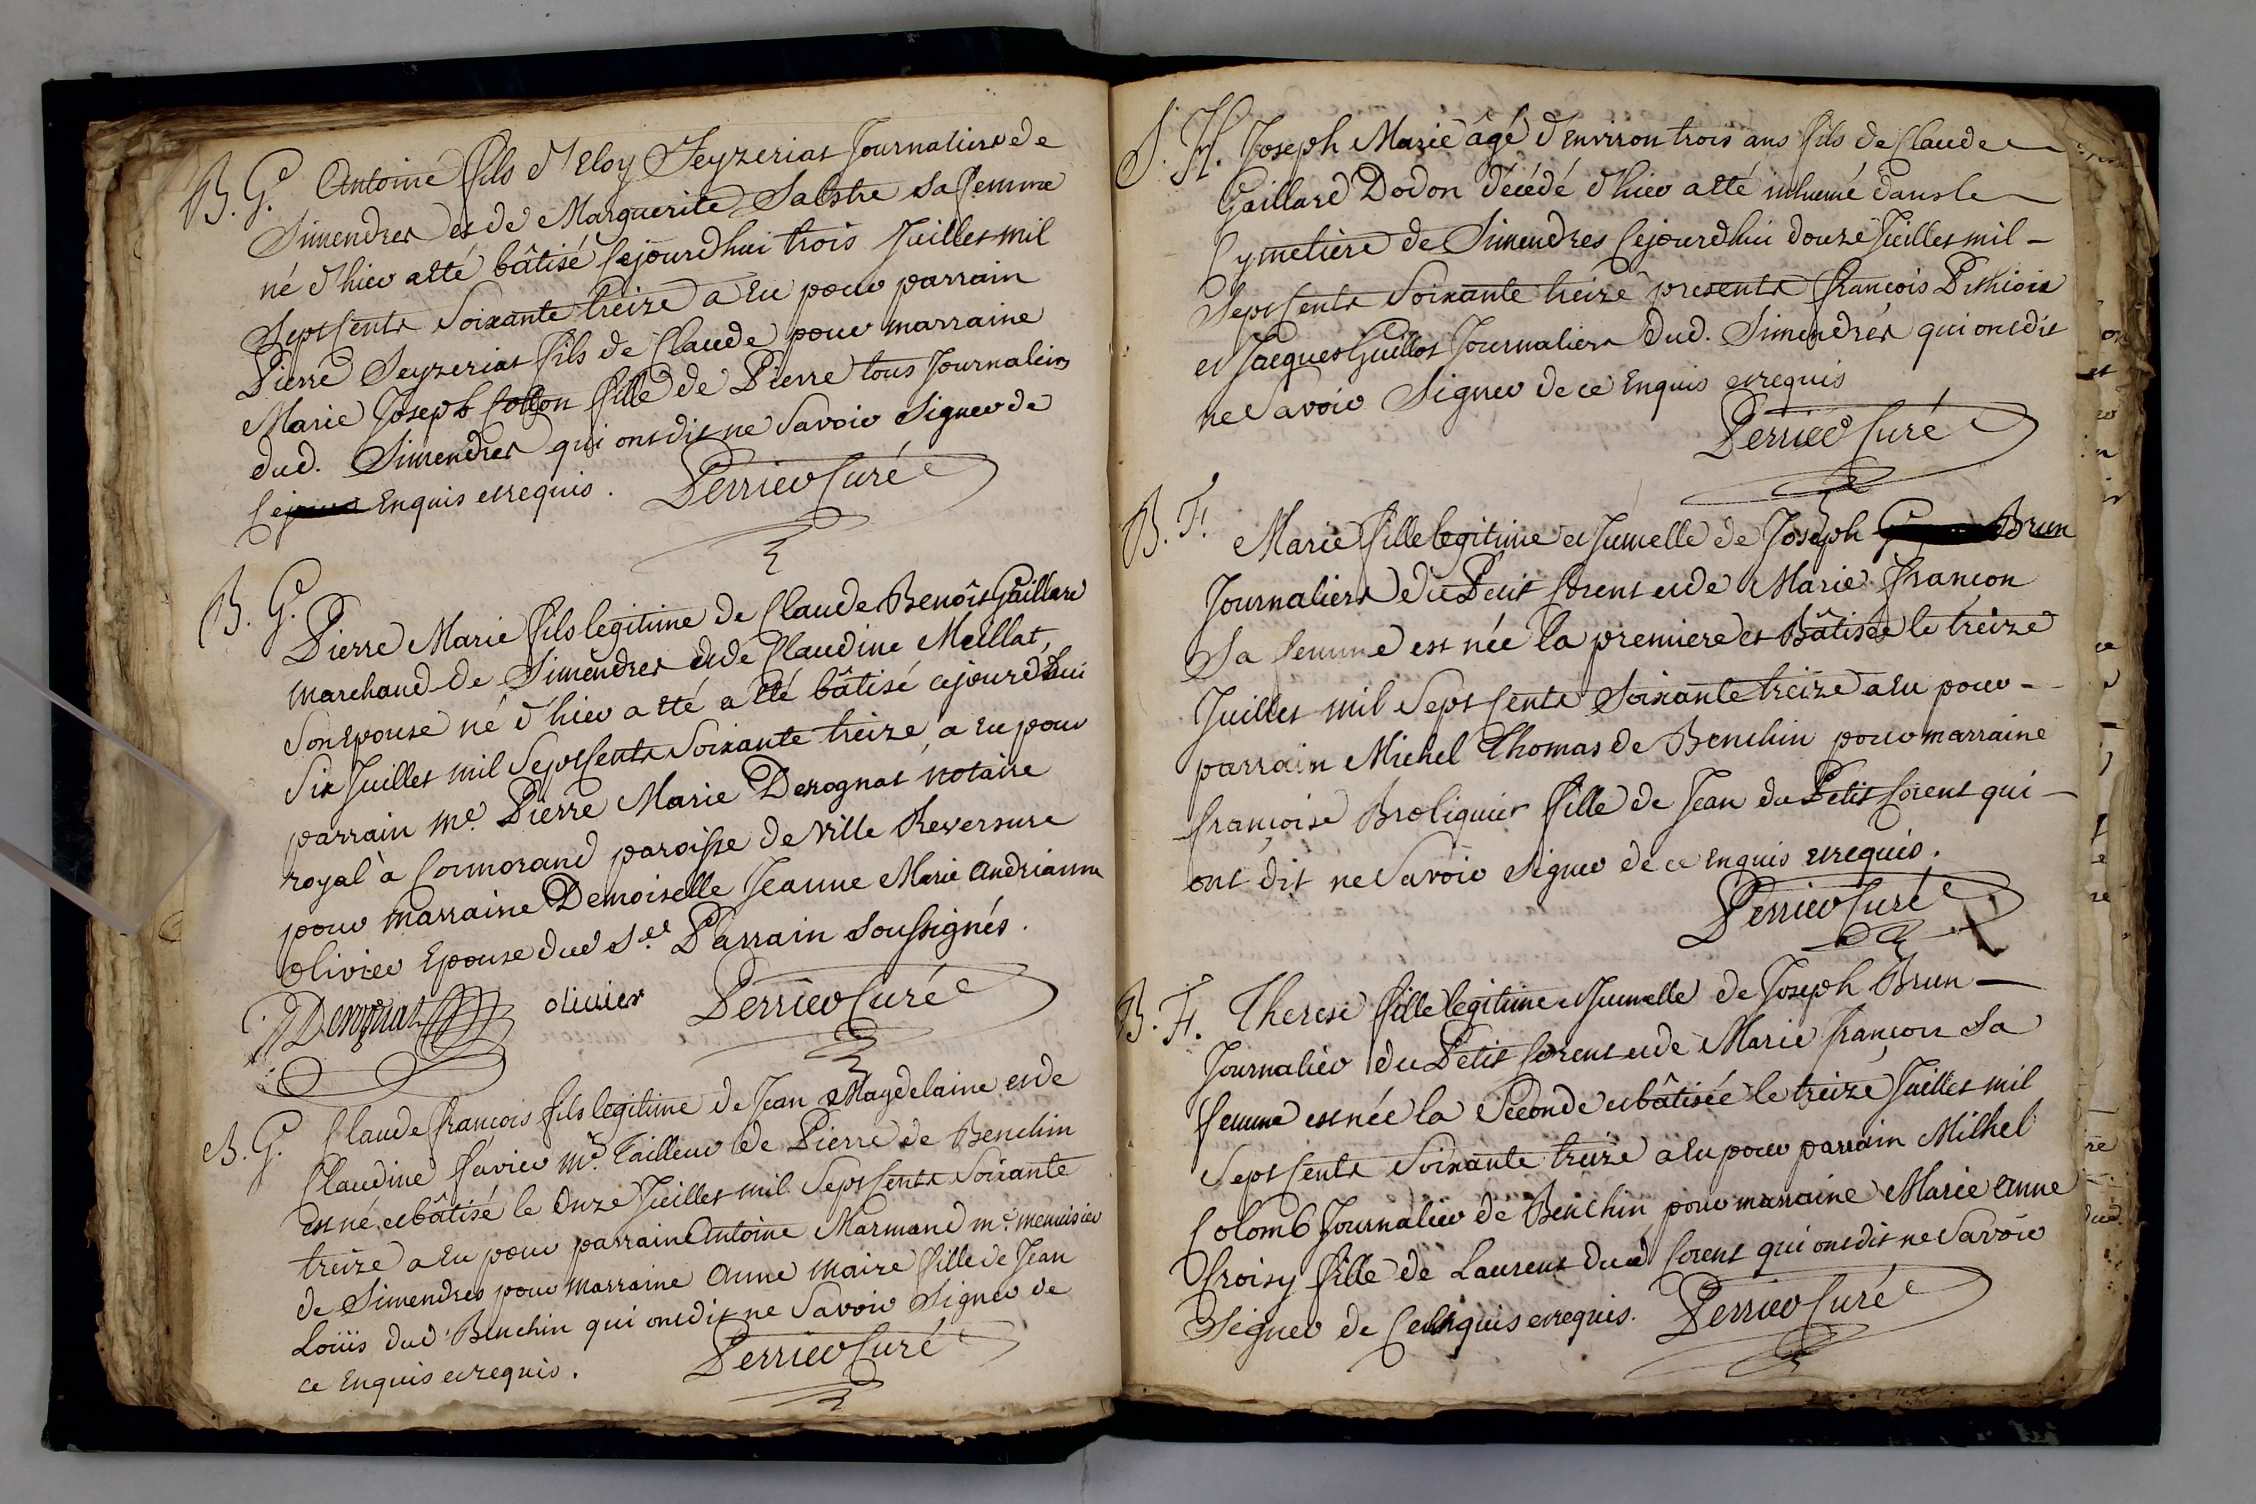 B. G. Antoine fils d'Eloy Seyzeriat Journalier de
Simendres et de Marguerite Sabstre sa femme
né d'hier a été bâtisé Cejourdhui trois Juillet mil
Sept Cents Soixante treize a Eu pour parrain
Pierre Seyzeriat fils de Claude pour marraine
Marie Joseph Cotton fille de Pierre tous Journaliers
dud. Simendres qui ont dit ne Savoir Signer de
Ce Enquis et requis. Perrier Curé
B. G.
Pierre Marie fils legitime de Claude Benoît Gaillard
marchand de Simendres et de Claudine Meillat,
Son Epouse né d'hier a été a été bâtisé cejourdhui
Six Juillet mil Sept Cents Soixante treize, a Eu pour
parrain me. Pierre Marie Derognat notaire
royal à Cormorand paroisse de Ville Reversure
pour marraine Demoiselle Jeanne Marie Andrianne
olivier Epouse dud Sr. Parrain Soussignés.
Derognat olivier Perrier Curé
B. G. Claude françois fils legitime de Jean Magdelaine et de
Claudine Cavier me. Tailleur de Pierre de Benchin
est né et bâtisé le Onze Juillet mil Sept Cents Soixante
treize a Eu pour parrain Antoine Marmand me. menuisier
de Simendres pour marraine Anne maire fille de Jean
Loüis dud. Benchin qui ont dit ne Savoir Signer de
ce Enquis et requis. Perrier Curé
S. H. Joseph Marie âgé d'Environ trois ans fils de Claude
Gaillard Dodon décédé d'hier a été inhumé dans le
Cymetière de Simendres Cejourdhui douze Juillet mil
Sept Cents Soixante treize presents françois Pithioix
et Jacques Guillot Journaliers dud. Simendres qui ont dit
ne Savoir Signer de ce Enquis et requis
Perrier Curé
B. F.
Marie fille legitime et Jumelle de Joseph Brun
Journalier du Petit Corent et de Marie françon
Sa femme est née la premiere et Bâtisée le treize
Juillet mil Sept Cents Soixante treize a Eu pour
parrain Michel Thomas de Benchin pour marraine
françoise Broliquier fille de Jean du Petit Corent qui
ont dit ne Savoir Signer de ce Enquis et requis.
Perrier Curé
B. F. Therese fille legitime et Jumelle de Joseph Brun
Journalier du Petit Corent et de Marie françon Sa
femme est née la Seconde et bâtisée le treize Juillet mil
Sept Cents Soixante treize a Eu pour parrain Mithel
Colomb Journalier de Benchin pour marraine Marie Anne
Croisy fille de Laurent dud Corent qui ont dit ne Savoir
Signer de Ce Enquis et requis. Perrier Curé